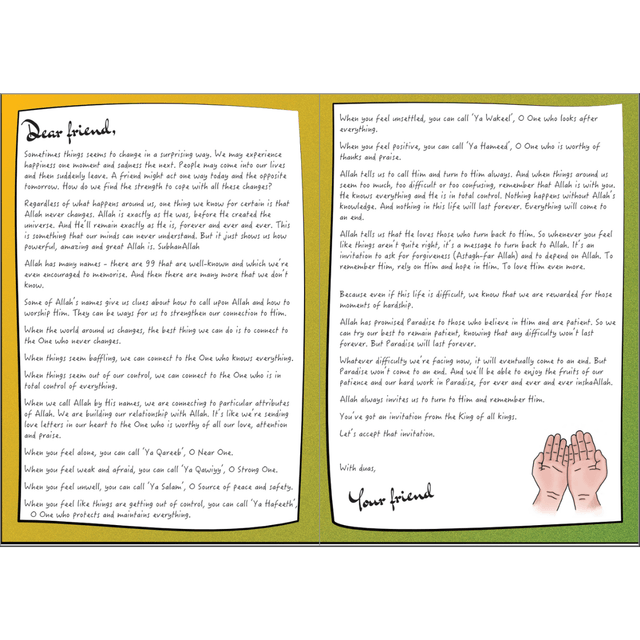 Dear friend,
Sometimes things seems to change in a surprising way. We may experience
happiness one moment and sadness the next. People may come into our lives
and then suddenly leave. A friend might act one way today and the opposite
tomorrow. How do we find the strength to cope with all these changes?
Regardless of what happens around us, one thing we know for certain is that
Allah never changes. Allah is exactly as He was, before He created the
universe. And He'll remain exactly as He is, forever and ever and ever. This
is something that our minds can never understand. But it just shows us how
powerful, amazing and great Allah is. SubhanAllah
Allah has many names - there are 99 that are well-known and which we're
even encouraged to memorise. And then there are many more that we don't
know.
Some of Allah's names give us clues about how to call upon Allah and how to
worship Him. They can be ways for us to strengthen our connection to Him.
When the world around us changes, the best thing we can do is to connect to
the One who never changes.
When things seem baffling, we can connect to the One who knows everything.
When things seem out of our control, we can connect to the One who is in
total control of everything.
When we call Allah by His names, we are connecting to particular attributes
of Allah. We are building our relationship with Allah. It's like we're sending
love letters in our heart to the One who is worthy of all our love, attention
and praise.
When you feel alone, you can call 'Ya Qareeb', O Near One.
When you feel weak and afraid, you can call 'Ya Qawiyy', O Strong One.
When you feel unwell, you can call 'Ya Salam', O Source of peace and safety.
When you feel like things are getting out of control, you can call 'Ya Hafeeth',
O One who protects and maintains everything.
When you feel unsettled, you can call 'Ya Wakeel', O One who looks after
everything.
When you feel positive, you can call 'Ya Hameed', O One who is worthy of
thanks and praise.
Allah tells us to call Him and turn to Him always. And when things around us
seem too much, too difficult or too confusing, remember that Allah is with you.
He knows everything and He is in total control. Nothing happens without Allah's
knowledge. And nothing in this life will last forever. Everything will come to
an end.
Allah tells us that He loves those who turn back to Him. So whenever you feel
like things aren't quite right, it's a message to turn back to Allah. It's an
invitation to ask for forgiveness (Astagh-far Allah) and to depend on Allah. To
remember Him, rely on Him and hope in Him. To love Him even more.
Because even if this life is difficult, we know that we are rewarded for those
moments of hardship.
Allah has promised Paradise to those who believe in Him and are patient. So we
can try our best to remain patient, knowing that any difficulty won't last
forever. But Paradise will last forever.
Whatever difficulty we're facing now, it will eventually come to an end. But
Paradise won't come to an end. And we'll be able to enjoy the fruits of our
patience and our hard work in Paradise, for ever and ever and ever inshaAllah.
Allah always invites us to turn to Him and remember Him.
You've got an invitation from the King of all kings.
Let's accept that invitation.
With duas,
Your friend